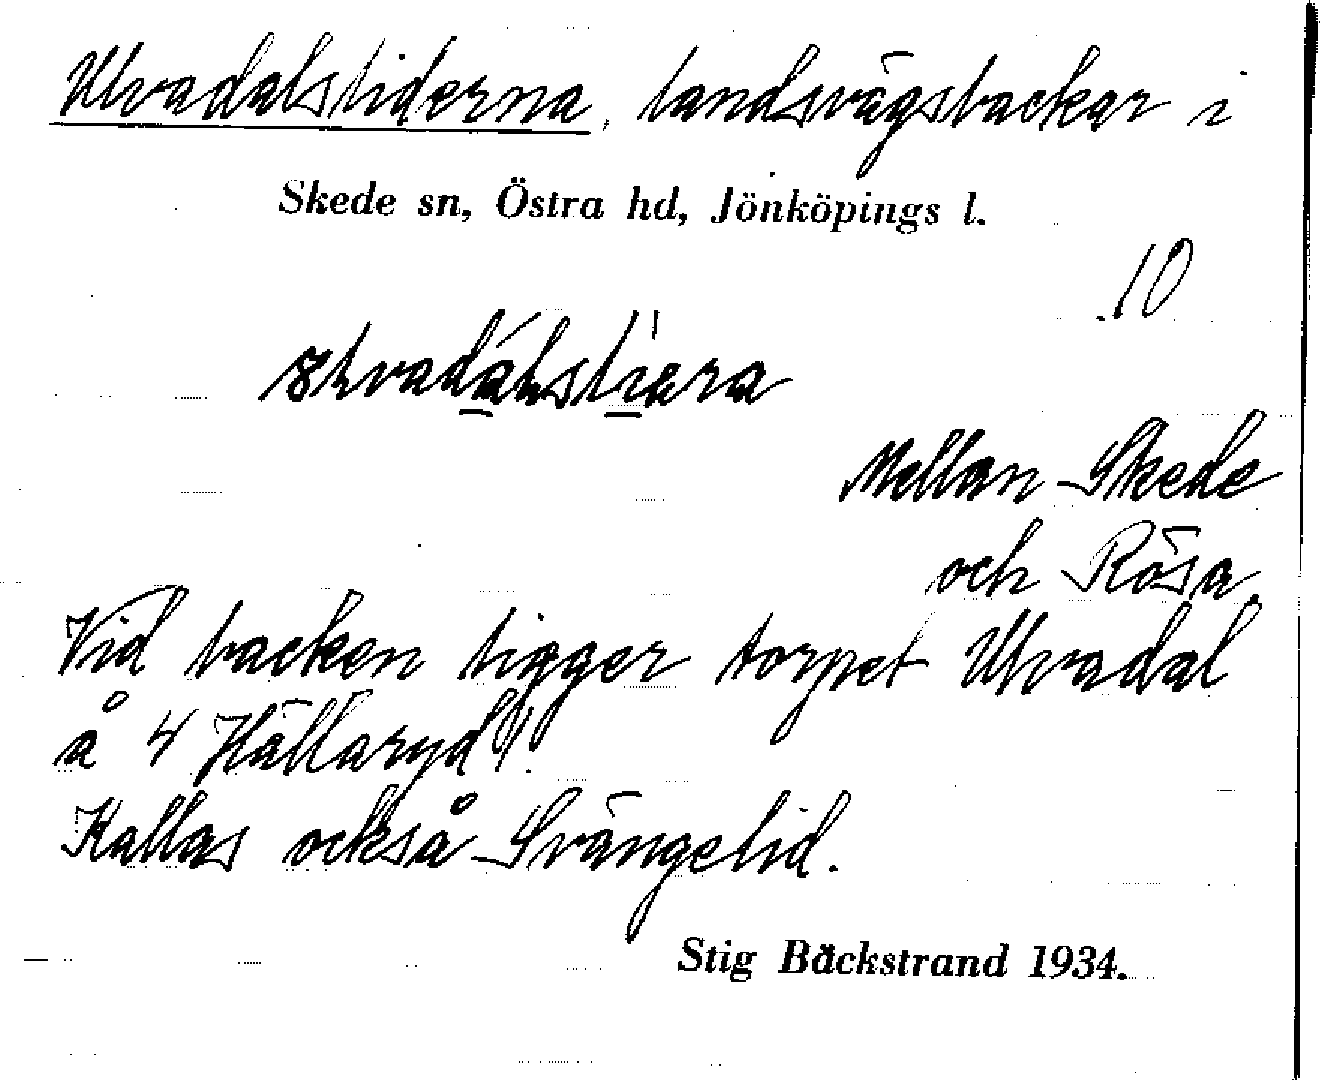 Ulvadalsliderna, landsvägsbackar i
Skede sn, Östra hd, Jönköpings l.
10
Mellan Skede
och Rösa.
Vid backen ligger torpet Ulvadal
å "Hällaryd".
Kallas också Svängelid.
Stig Bäckstrand 1934.